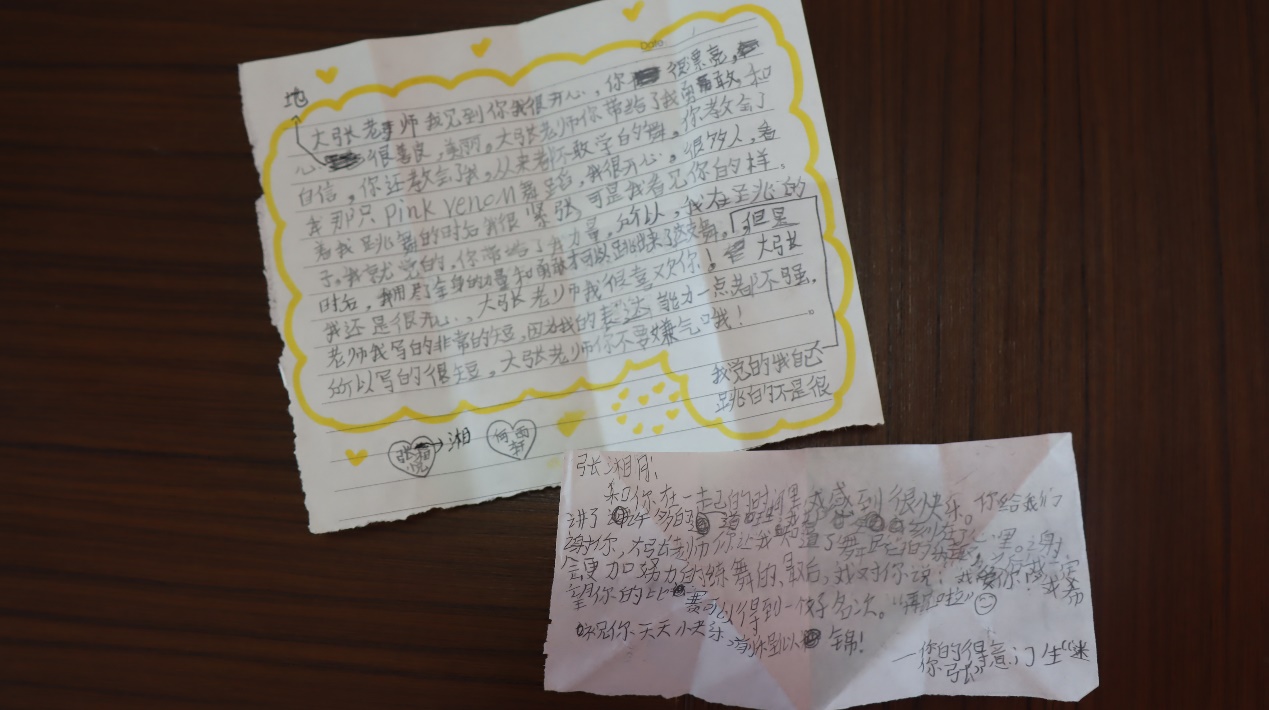 Date /
地
大张老师我见到你我很开心,你很漂亮,
很善良,美丽。大张老师你带给了我勇敢和
自信,你还教会了我,从来都不敢学的舞。你教会了
我那只pink venom舞蹈,我很开心。很多人,看
着我跳舞的时后我很紧张可是我看见你的样
子,我就觉的,你带给了我力量,所以,我在上兆的
时后,我用尽全身的力量和勇敢才可以跳完了这支舞。但是
我还是很开心、大张老师我很喜欢你!大张
老师我写的非常的短,因为我的表达能力一点都不强,
所以写的很短。大张老师你不要嫌气哦!
我觉的我自己
跳的不是很
张湘悦
湘
张湘月:
和你在一起的时间里,我感到很快乐。你给我们
讲了许多的道理 刻在了心里。谢
谢你,大张老师你让我知道了舞蹈
会更加努力的练舞的,最后,我对你说:我爱你!我希
望你的比赛可以得到一个好名次。“再见啦”
祝你天天小快乐,前途似锦!
—你的得意门生“迷
你张”